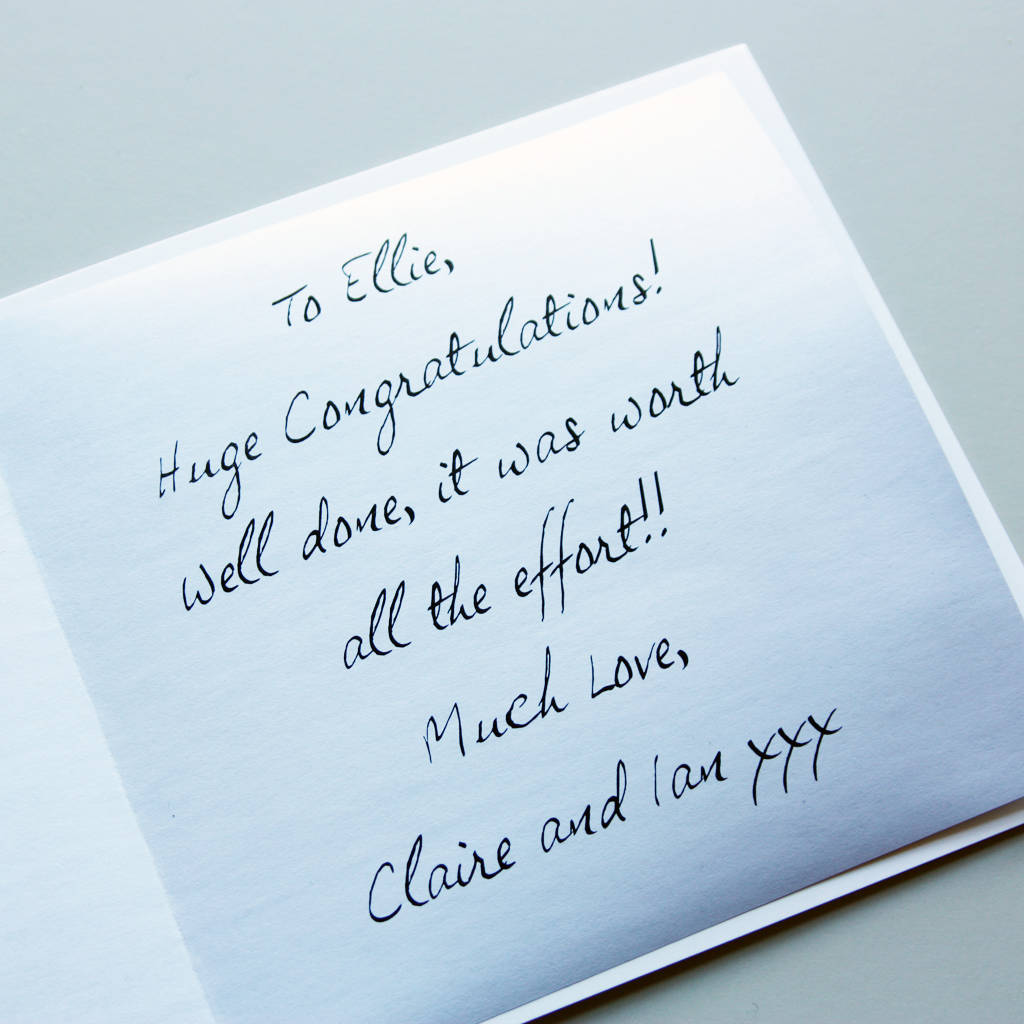 To Ellie,
Huge Congratulations!
Well done, it was worth
all the effort!!
Much Love,
Claire and Ian xxx